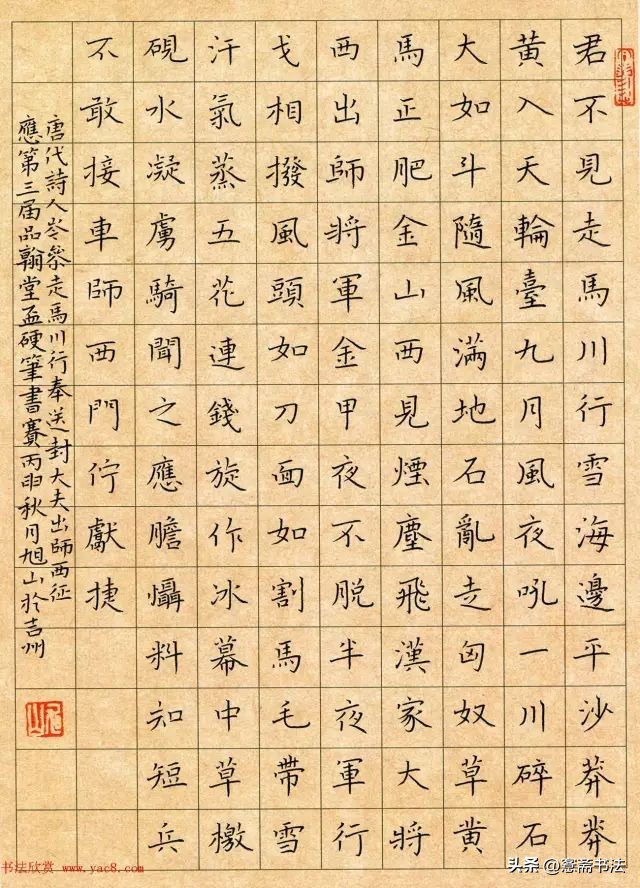 君不見走馬川行雪海邊平沙莽莽
黃入天輪臺九月風夜吼一川碎石
大如斗隨風滿地石亂走匈奴草黃
馬正肥金山西見煙塵飛漢家大將
西出師將軍金甲夜不脫半夜軍行
戈相撥風頭如刀面如割馬毛帶雪
汗氣蒸五花連錢旋作冰幕中草檄
硯水凝虜騎聞之應膽懾料知短兵
不敢接車師西門佇獻捷
唐代詩人岑參走馬川行奉送封大夫出師西征
應第三届品翰堂盃硬筆書賽丙申秋月旭山於吉州
书法欣赏 www.yac8.com
头条 @斋书法